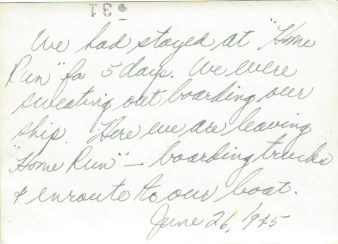 31
We had stayed at "Home
Run" for 5 days. We were
sweating out boarding our
ship. Here we are leaving
"Home Run" — boarding trucks
& enroute to our boat.
June 26, 1945